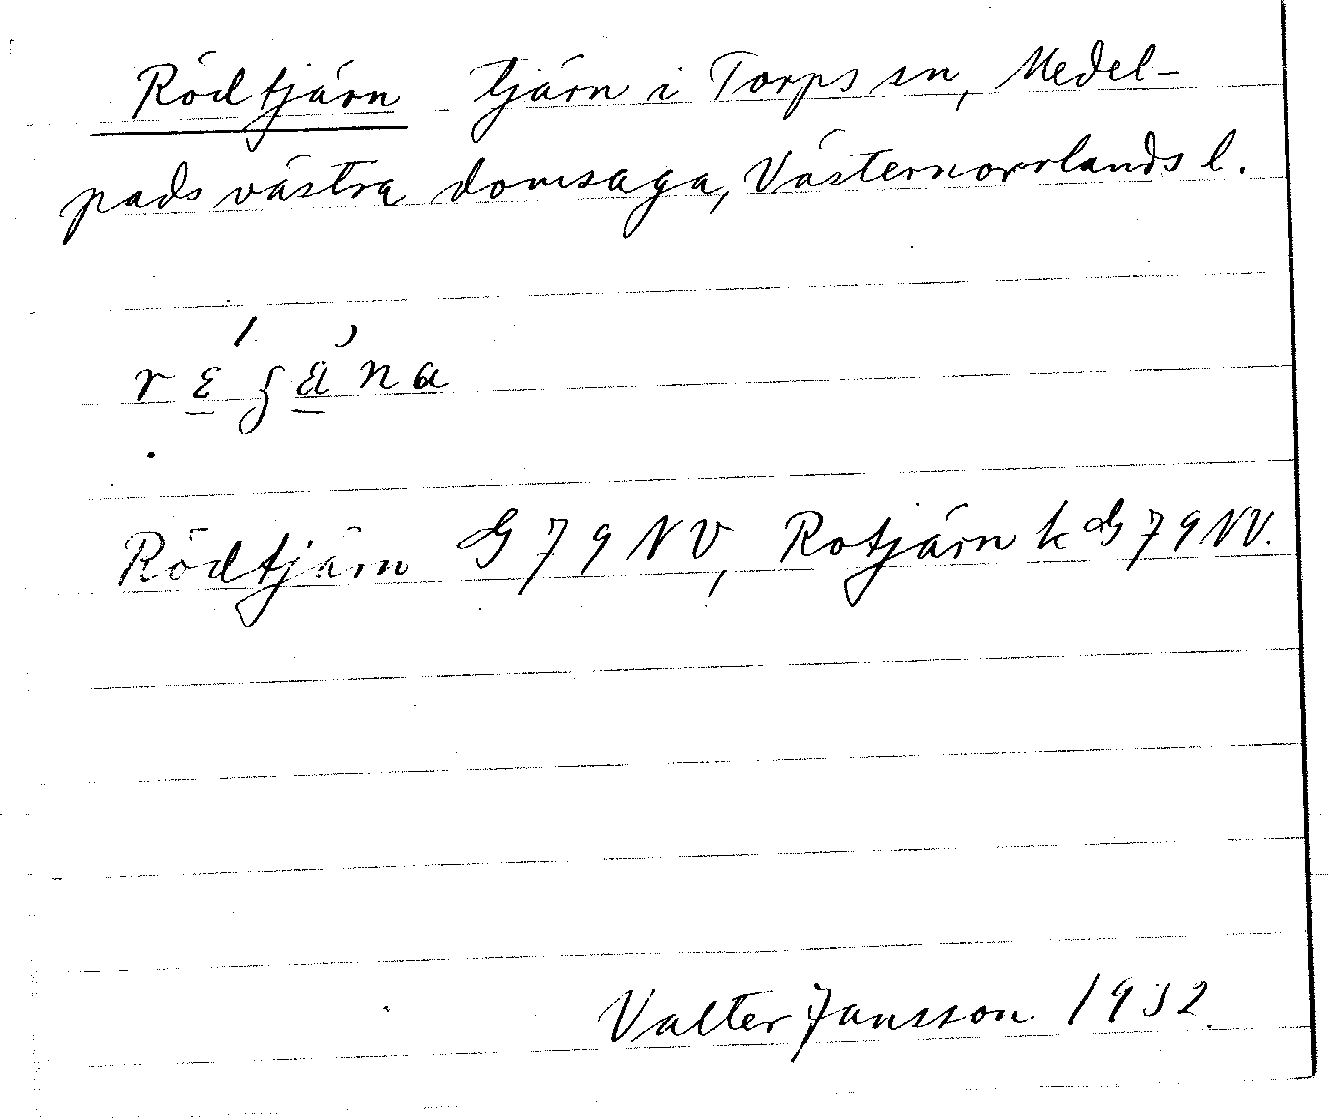 Rödtjärn tjärn i Torps sn, Medel-
pads västra domsaga, Västernorrlands l.
Rödtjärn G 79 NV, Rotjärn k G 79 NV.
Valter Jansson 1932